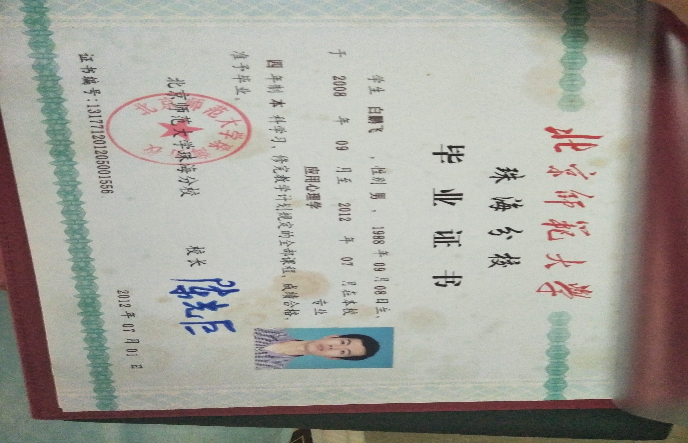 北京师范大学
珠海分校
毕业证书
学生 白鹏飞 ，性别 男 ，1988 年 09 月 08 日生，
于 2008 年 09 月至 2012 年 07 月在本校
应用心理学 专业
四 年制 本 科学习，修完教学计划规定的全部课程，成绩合格，
准予毕业。
北京师范大学珠海分校
校长
证书编号:131771201205001556
2012 年 07 月 01 日